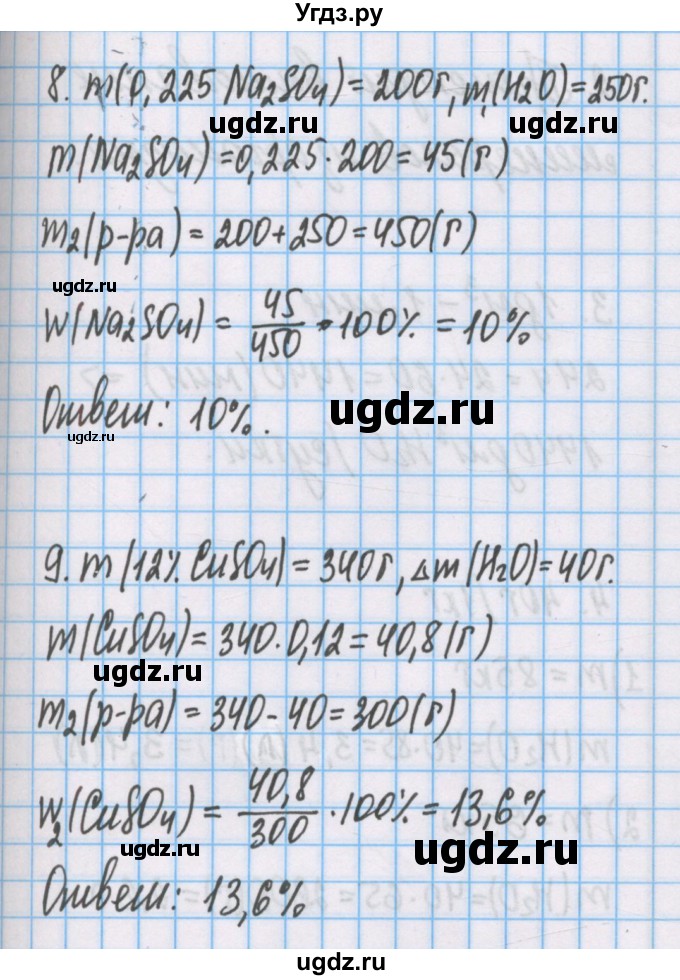 Угдз.ру
8. m(0,225 Na₂SO₄) = 200г, m(H₂O) = 250г.
ugdz.ru ugdz.ru
m(Na₂SO₄) = 0,225 · 200 = 45(г)
m₂(р-ра) = 200 + 250 = 450(г)
ugdz.ru
W(Na₂SO₄) = 45/450 · 100% = 10%
Ответ: 10%.
ugdz.ru
ugdz.ru
9. m(12% CuSO₄) = 340г, Δm(H₂O) = 40г.
m(CuSO₄) = 340 · 0,12 = 40,8(г)
ugdz.ru
m₂(р-ра) = 340 - 40 = 300(г)
W₂(CuSO₄) = 40,8/300 · 100% = 13,6%
ugdz.ru
ugdz.ru
Ответ: 13,6%
ugdz.ru